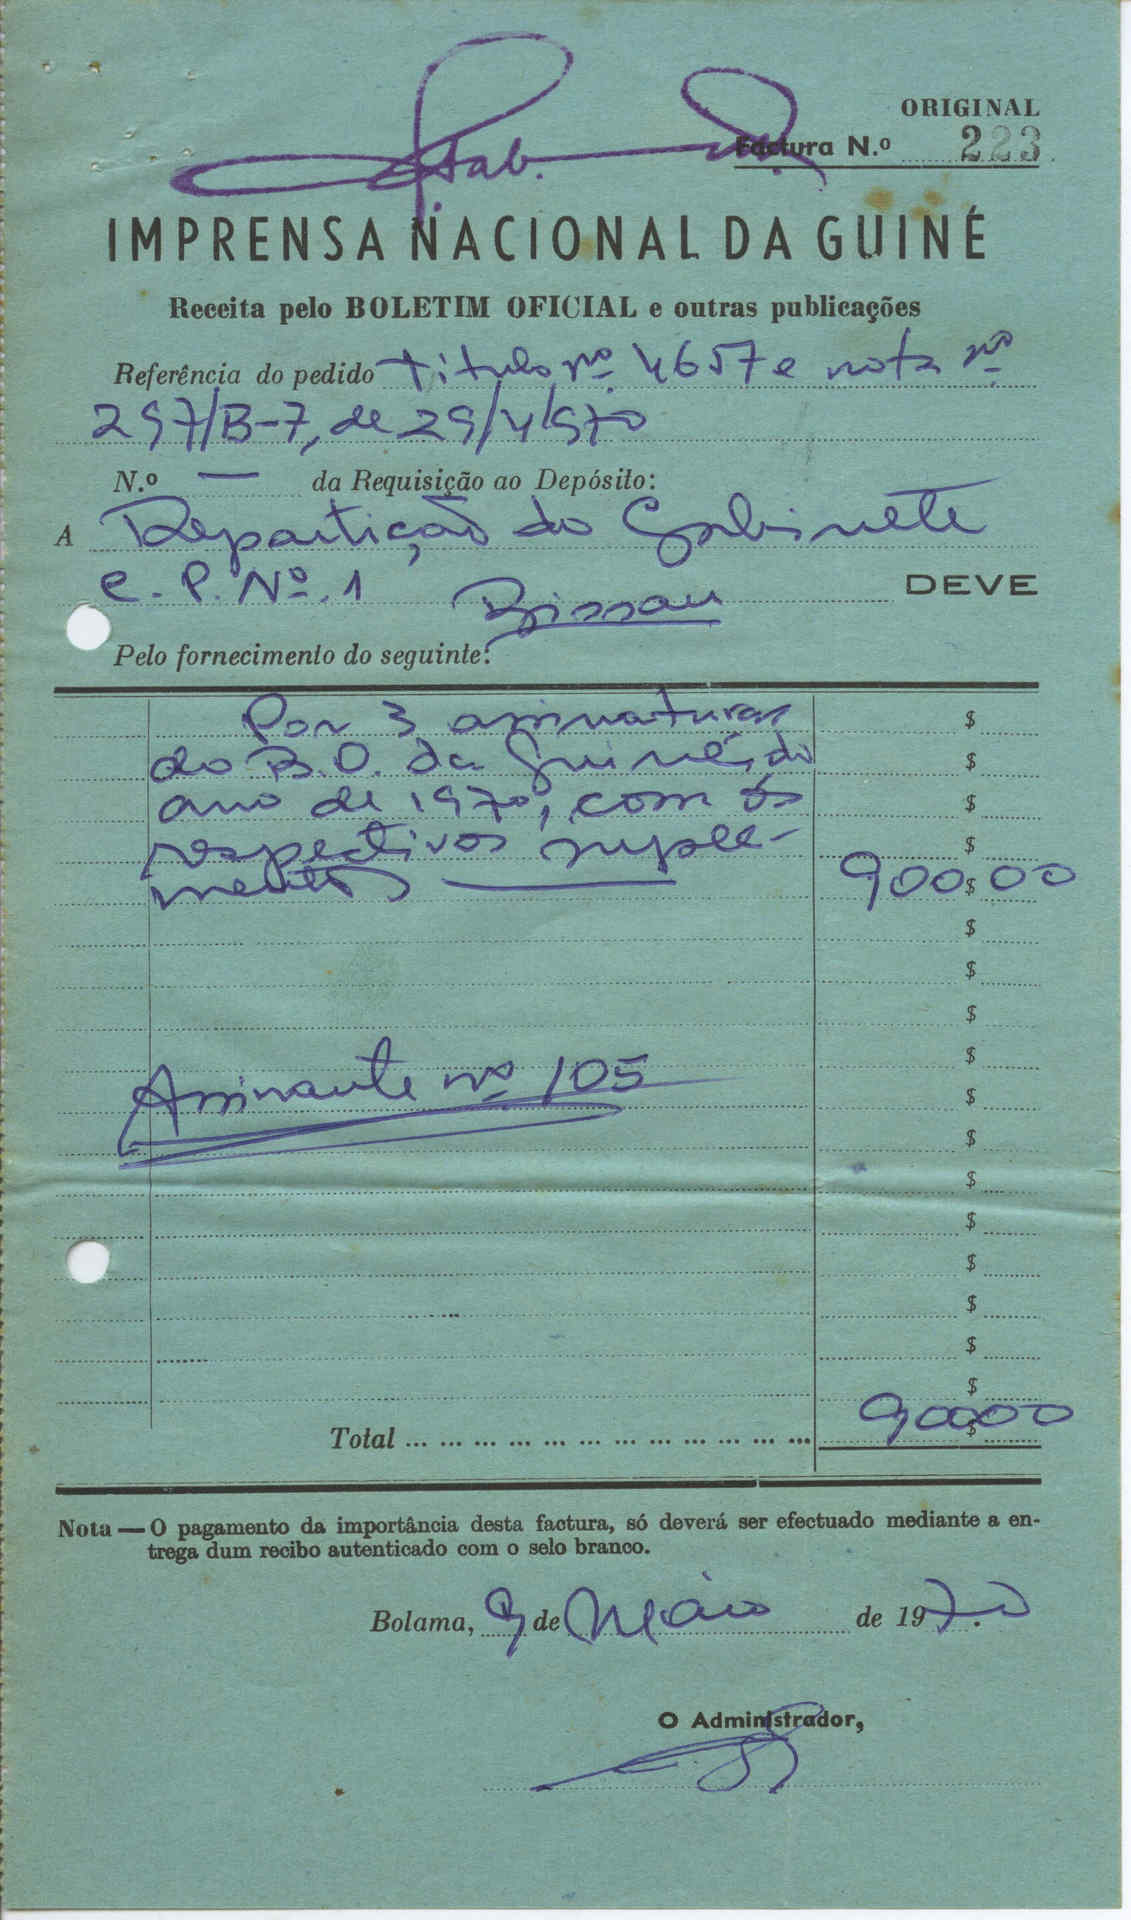 ORIGINAL
Gab.
Factura N.º 223
IMPRENSA NACIONAL DA GUINÉ
Receita pelo BOLETIM OFICIAL e outras publicações
Referência do pedido titulo nº. 4657 e nota nº
297/B-7, de 29/4/970
N.º — da Requisição ao Depósito:
A Repartição do Gabinete
C. P. Nº. 1 Bissau DEVE
Pelo fornecimento do seguinte:
Por 3 assinaturas $
do B.O. da Guiné, do $
ano de 1970, com os $
respectivos suple- $
mentos 900$00
$
$
$
$
Assinante nº 105 $
$
$
$
$
$
$
$
Total ... ... ... ... ... ... ... ... ... ... ... ... 900$00
Nota — O pagamento da importância desta factura, só deverá ser efectuado mediante a en-
trega dum recibo autenticado com o selo branco.
Bolama, 9 de Maio de 1970.
O Administrador,